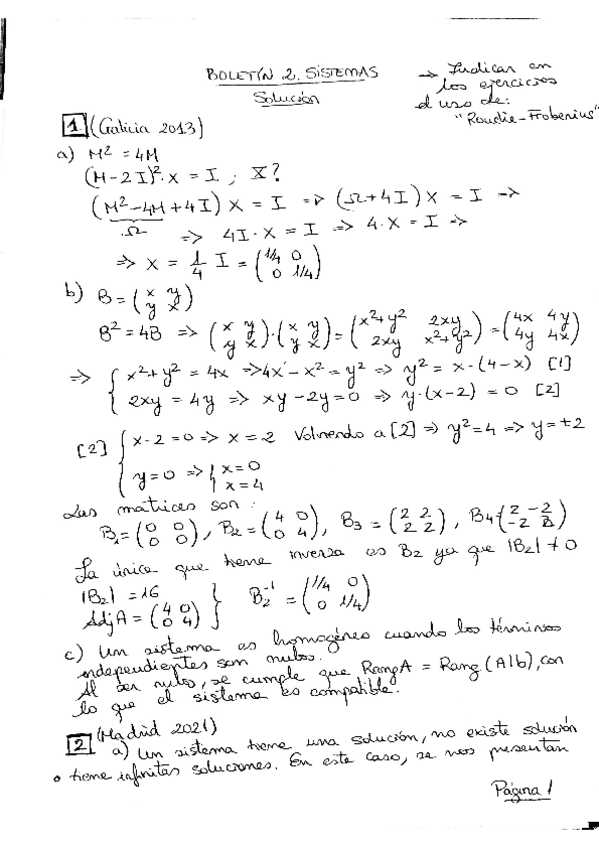 BOLETÍN 2. SISTEMAS
Solución
→ Indicar en
los ejercicios
el uso de:
"Rouche-Frobenius"
1 (Galicia 2013)
a) M² = 4M
(M-2I)²·X = I ; X?
(M²-4M+4I) X = I => (Ω+4I) X = I =>
Ω => 4I·X = I => 4·X = I =>
=> X = 1/4 I = (1/4 0 / 0 1/4)
b) B = (x y / y x)
B² = 4B => (x y / y x)·(x y / y x) = (x²+y² 2xy / 2xy x²+y²) = (4x 4y / 4y 4x)
=> { x²+y² = 4x => 4x-x² = y² => y² = x·(4-x) [1]
2xy = 4y => xy-2y=0 => y·(x-2) = 0 [2]
[2] { x-2=0 => x=2 Volviendo a [2] => y²=4 => y=±2
y=0 => { x=0
x=4
Las matrices son:
B₁=(0 0 / 0 0), B₂=(4 0 / 0 4), B₃=(2 2 / 2 2), B₄(2 -2 / -2 2)
La única que tiene inversa es B₂ ya que |B₂| ≠ 0
|B₂| = 16
Adj A = (4 0 / 0 4) } B₂⁻¹ = (1/4 0 / 0 1/4)
c) Un sistema es homogéneo cuando los términos
independientes son nulos.
Al ser nulos, se cumple que Rang A = Rang (A|b), con
lo que el sistema es compatible.
2 (Madrid 2021)
a) Un sistema tiene una solución, no existe solución
o tiene infinitas soluciones. En este caso, se nos presentan
Página 1